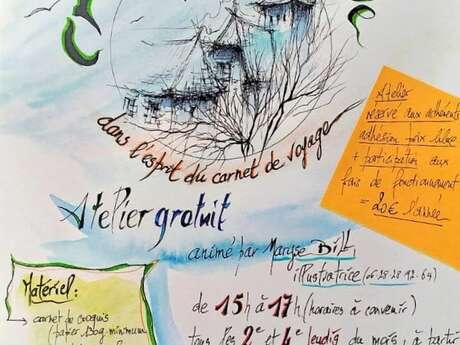 dans l'esprit du carnet de voyage
Atelier
réservé aux adhérents
adhésion prix libre
+ participation aux
frais de fonctionnement
= 20€ l'année
Atelier gratuit
animé par Maryse
illustratrice
Matériel:
→ carnet de croquis
(papier 130g minimum
de 15h à 17h (horaires à convenir)
tous les 2e et 4e jeudis du mois, à partir